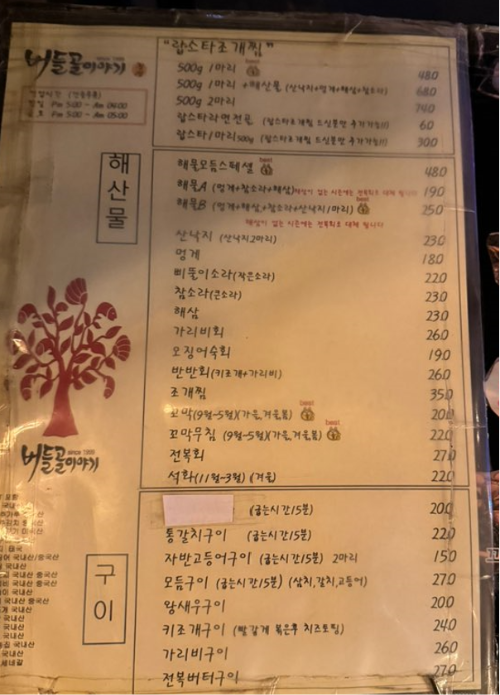 버들골이야기
since 1999
영업시간 (연중무휴)
평일 Pm 5:00 - Am 04:00
금토 Pm 5:00 - Am 05:00
"랍스타조개찜"
500g 1마리 best 48.0
500g 1마리 +해산물 (산낙지+멍게+해삼+참소라) 68.0
500g 2마리 74.0
랍스타라면전골 (랍스타조개찜 드신분만 추가가능!!) 6.0
랍스타1마리500g (랍스타조개찜 드신분만 추가가능!!) 30.0
해산물
해물모둠스페셜 best 48.0
해물A (멍게+참소라+해삼)해삼이 없는 시즌에는 전복회로 대체 됩니다 19.0
해물B (멍게+해삼+참소라+산낙지1마리) best 25.0
해삼이 없는 시즌에는 전복회로 대체 됩니다
산낙지 (산낙지2마리) 23.0
멍게 18.0
삐뚤이소라(작은소라) 22.0
참소라(큰소라) 23.0
해삼 23.0
가리비회 26.0
오징어숙회 19.0
반반회(키조개+가리비) 26.0
조개찜 35.0
꼬막(9월-5월)(가을,겨울,봄) best 20.0
꼬막무침 (9월-5월)(가을,겨울,봄) best 22.0
전복회 27.0
석화(11월-3월) (겨울) 22.0
버들골이야기
since 1999
구이
(굽는시간15분) 20.0
통갈치구이 (굽는시간15분) 22.0
자반고등어구이 (굽는시간15분) 2마리 15.0
모듬구이 (굽는시간15분) (삼치,갈치,고등어) 27.0
왕새우구이 20.0
키조개구이 (빨갛게 볶은후 치즈토핑) 24.0
가리비구이 26.0
전복버터구이 27.0